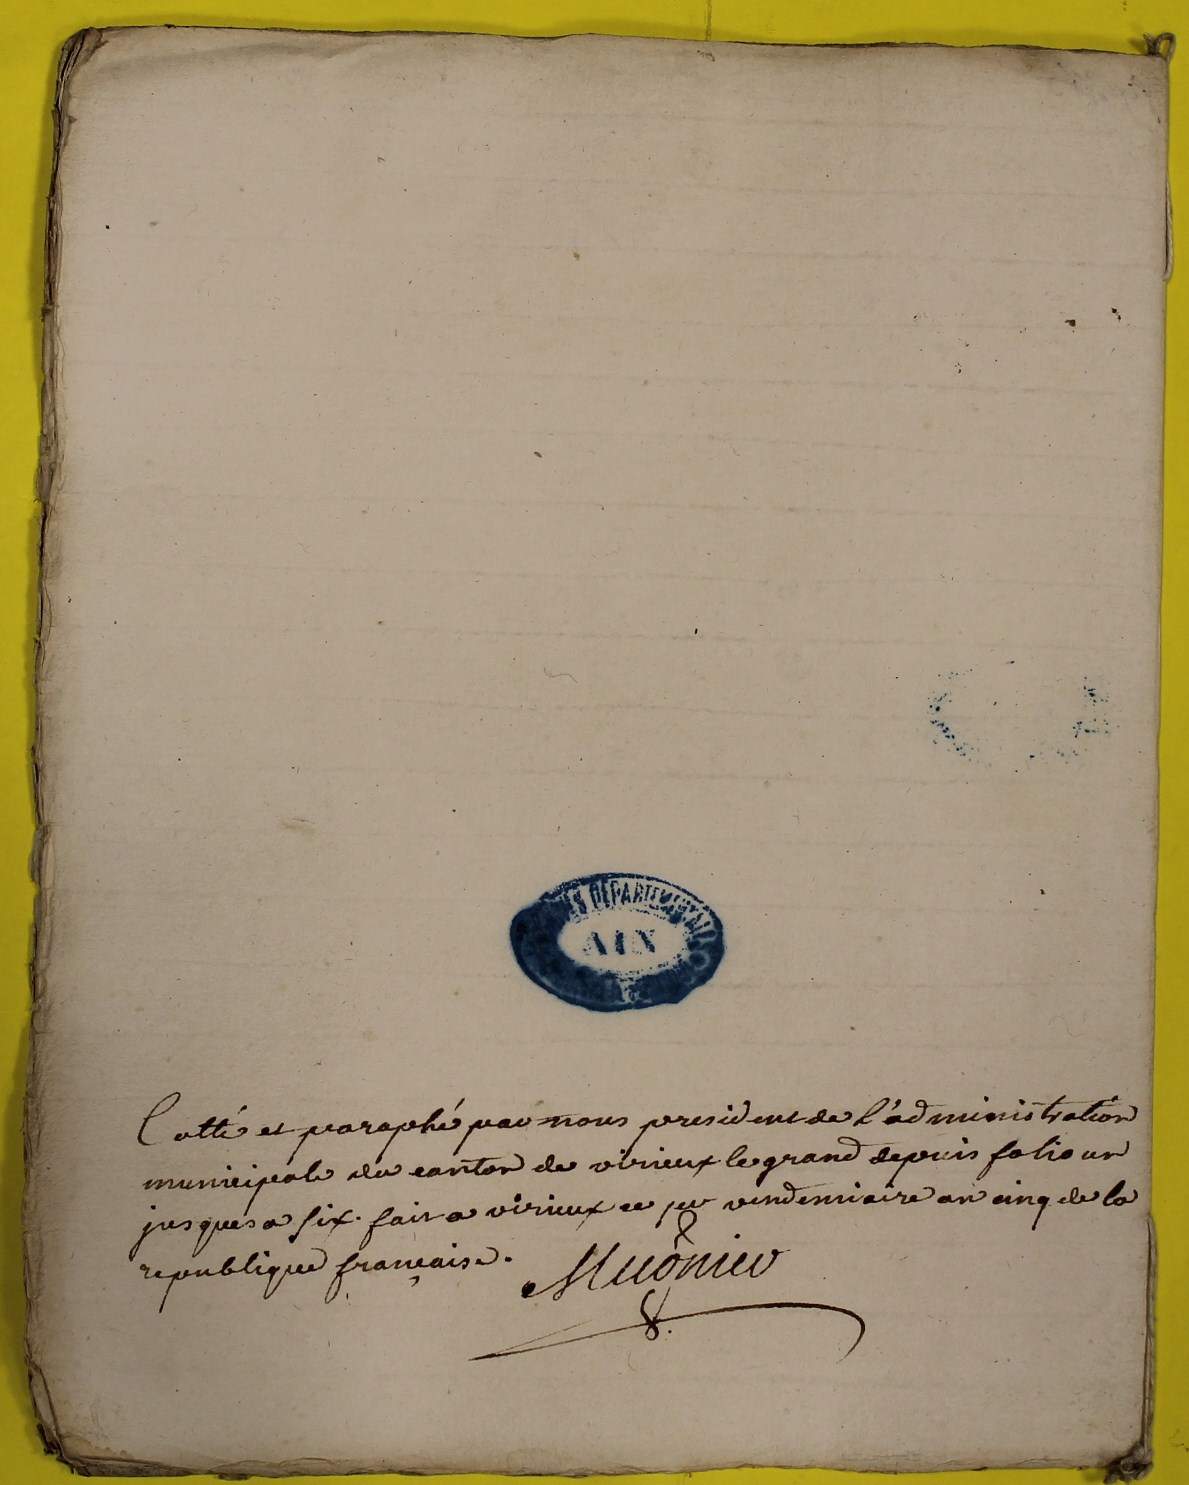 DEPARTEMENTALES
AIN
Cotté et paraphé par nous president de l'administration
municipale du canton de virieux le grand depuis folio un
jusques a six. fait a virieux ce per vendemiaire an cinq de la
republique française.